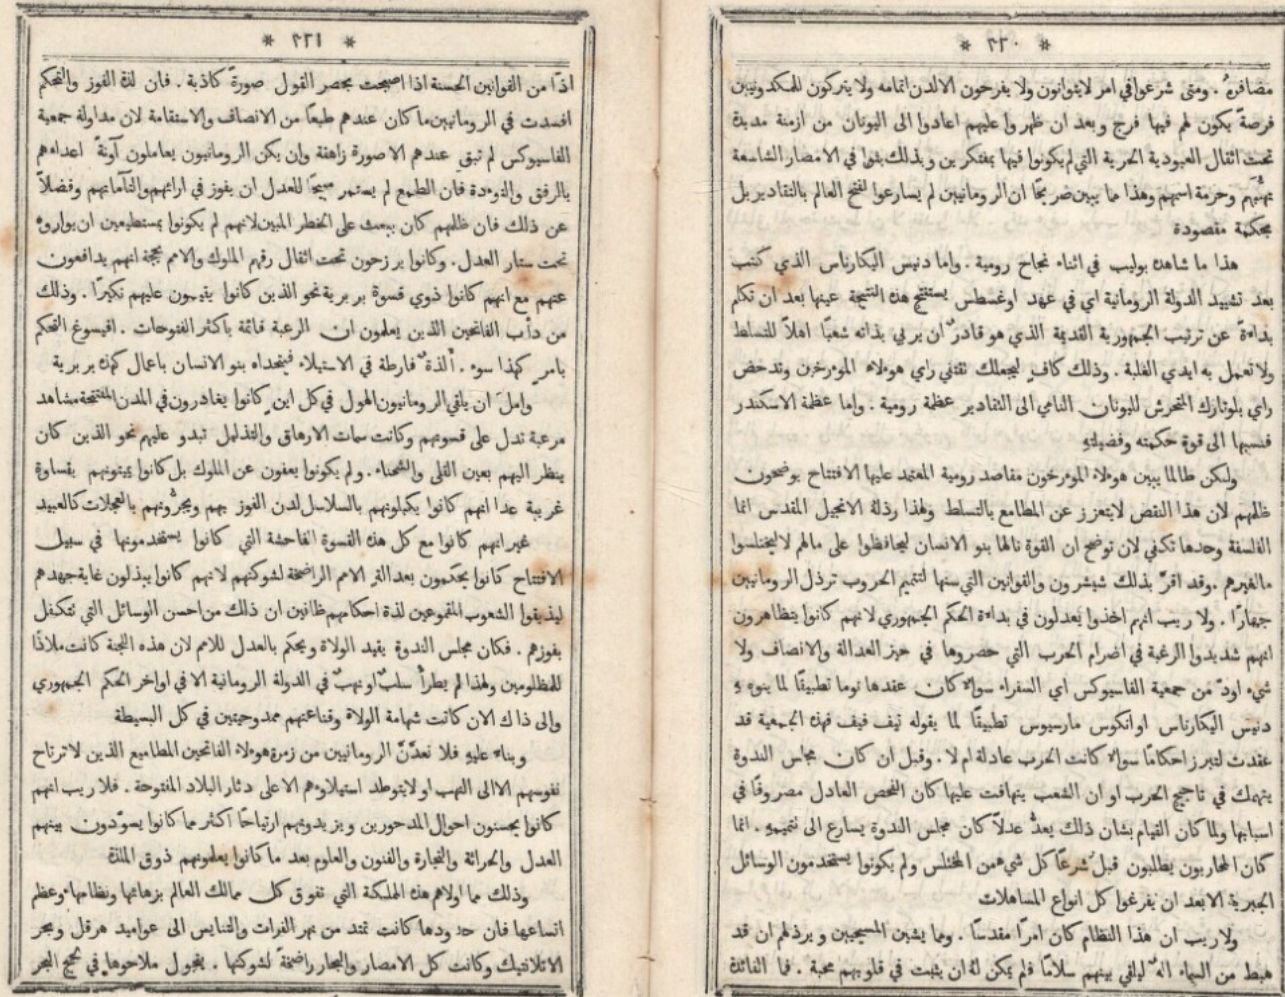 * ٢٢٠ *
مضافرهُ . ومتى شرعوا في امر لا يتوانون ولا يفرحون الا لدن اتمامه ولا يتركون للمكدونيين
فرصةً يكون لهم فيها فرج وبعد ان ظهروا عليهم اعادوا الى اليونان من ازمنة مديدة
تحت اثقال العبودية الحرية التي لم يكونوا فيها بمفتكرين وبذلك بثوا في الامصار الشاسعة
تهيُّبهم وحرمة اسمهم وهذا ما يبين صريحًا ان الرومانيين لم يسارعوا لفتح العالم بالتقادير بل
بحكمة مقصودة
هذا ما شاهدهُ بوليب في اثناء نجاح رومية . واما دنيس اليكارناس الذي كتب
بعد تشييد الدولة الرومانية اي في عهد اوغسطس يستنتج هذه النتيجة عينها بعد ان تكلم
بداءةً عن ترتيب الجمهورية القديمة الذي هو قادرٌ ان يربي بذاته شعبًا اهلاً للتسلط
ولا تعمل به ايدي الغلبة . وذلك كافٍ ليجعلك تقتفي راي هوءلاء الموءرخين وتدحض
راي بلوتارك المتحرش لليونان النامي الى التقادير عظمة رومية . واما عظمة الاسكندر
فنسبها الى قوة حكمته وفضيلتهِ
ولكن طالما يبين هوءلاء الموءرخون مقاصد رومية المعتمد عليها الافتتاح يوضحون
ظلمهم لان هذا النقص لا يتعزز عن المطامع بالتسلط ولهذا رذلهُ الانجيل المقدس انما
الفلسفة وحدها تكفي لان توضح ان القوة نالها بنو الانسان ليحافظوا على مالهم لا ليختلسوا
ما لغيرهم . وقد اقرَّ بذلك شيشرون والقوانين التي سنها لتتميم الحروب ترذل الرومانيين
جهارًا . ولا ريب انهم اخذوا يعدلون في بداءة الحكم الجمهوري لانهم كانوا يتظاهرون
انهم شديدوا الرغبة في اضرام الحرب التي حصروها في حيز العدالة والانصاف ولا
شيء اودّ من جمعية الفاسيوكس اي السفراء سوالا كان عقدها نوما تطبيقًا لما ينوء ءِ
دنيس اليكارناس او انكوس مارسيوس تطبيقًا لما يقوله تيف ليف فهذه الجمعية قد
عقدت لتبرز احكامًا سوالا كانت الحرب عادلة ام لا . وقبل ان كان مجلس الندوة
ينهمك في تاجيج الحرب او ان الشعب يتهافت عليها كان الفحص العادل مصروفًا في
اسبابها ولما كان القيام بشان ذلك يعدُّ عدلاً كان مجلس الندوة يسارع الى تتميمهِ . انما
كان المحاربون يطلبون قبلُ شرعًا كل شيء من المختلس ولم يكونوا يستخدمون الوسائل
الجبرية الا بعد ان يفرغوا كل انواع المساهلات
ولا ريب ان هذا النظام كان امرًا مقدسًا . ومما يشين المسيحيين ويرذلهم ان قد
هبط من السماء الهٌ ليلقي بينهم سلامًا فلم يمكن لهُ ان يثبت في قلوبهم محبة . فما الفائدة
* ٢٢١ *
اذًا من القوانين الحسنة اذا اصبحت بحصر القول صورةً كاذبة . فان لذة الفوز والتحكم
افسدت في الرومانيين ما كان عندهم طبعًا من الانصاف والاستقامة لان مداولة جمعية
الفاسيوكس لم تبقِ عندهم الا صورة زاهقة وان يكن الرومانيون يعاملون آونةً اعداءهم
بالرفق والتوءدة فان الطمع لم يستمر مبيحًا للعدل ان يفوز في ارائهم والتآماتهم وفضلاً
عن ذلك فان ظلمهم كان يبعث على الخطر المبين لانهم لم يكونوا بمستطيعين ان يواروهُ
تحت ستار العدل . وكانوا يرزحون تحت اثقال رقهم الملوك والامم بحجة انهم يدافعون
عنهم مع انهم كانوا ذوي قسوة بربرية نحو الذين كانوا يقيمون عليهم نكيرًا . وذلك
من دأب الفاتحين الذين يعلمون ان الرعبة قائمة باكثر الفتوحات . افيسوغ التحكم
بامرٍ كهذا سوء . ألذةٌ فارطة في الاستيلاء فيتحداه بنو الانسان باعمال كهذه بربرية
واملَ ان يلقي الرومانيون الهول في كل اين كانوا يغادرون في المدن المفتتحة مشاهد
مرعبة تدل على قسوتهم وكانت سمات الارهاق والتذليل تبدو عليهم نحو الذين كان
ينظر اليهم بعين القلى والشحناء . ولم يكونوا يعفون عن الملوك بل كانوا يميتونهم بقساوة
غريبة عدا انهم كانوا يكبلونهم بالسلاسل لدن الفوز بهم ويجرُّونهم بالعجلات كالعبيد
غير انهم كانوا مع كل هذه القسوة الفاحشة التي كانوا يستخدمونها في سبيل
الافتتاح كانوا يحكمون بعد القر الامم الراضخة لشوكتهم لانهم كانوا يبذلون غاية جهدهم
ليذيقوا الشعوب المقموعين لذة احكامهم ظانين ان ذلك من احسن الوسائل التي تتكفل
بفوزهم . فكان مجلس الندوة يقيد الولاة ويحكم بالعدل للامم لان هذه اللجنة كانت ملاذًا
للمظلومين ولهذا لم يطرأ سلبٌ او نهبٌ في الدولة الرومانية الا في اواخر الحكم الجمهوري
والى ذاك الان كانت شهامة الولاة وقناعتهم ممدوحتين في كل البسيطة
وبناء عليهِ فلا نعدّنّ الرومانيين من زمرة هوءلاء الفاتحين المطاميع الذين لا ترتاح
نفوسهم الا الى النهب او لا يتوطد استيلاوءهم الا على دثار البلاد المفتوحة . فلا ريب انهم
كانوا يحسنون احوال المدحورين ويزيدونهم ارتياحًا اكثر مما كانوا يسوّدون بينهم
العدل والحراثة والتجارة والفنون والعلوم بعد ما كانوا يعلمونهم ذوق الملذة
وذلك مما اولاهم هذه المملكة التي تفوق كل ممالك العالم بزهائها ونظامها وعظم
اتساعها فان حدودها كانت تمتد من نهر الفرات والتنايس الى عواميد هرقل وبحر
الاتلانتيك وكانت كل الامصار والبحار راضخةً لشوكتها . يجول ملاحوها في لجج البحر